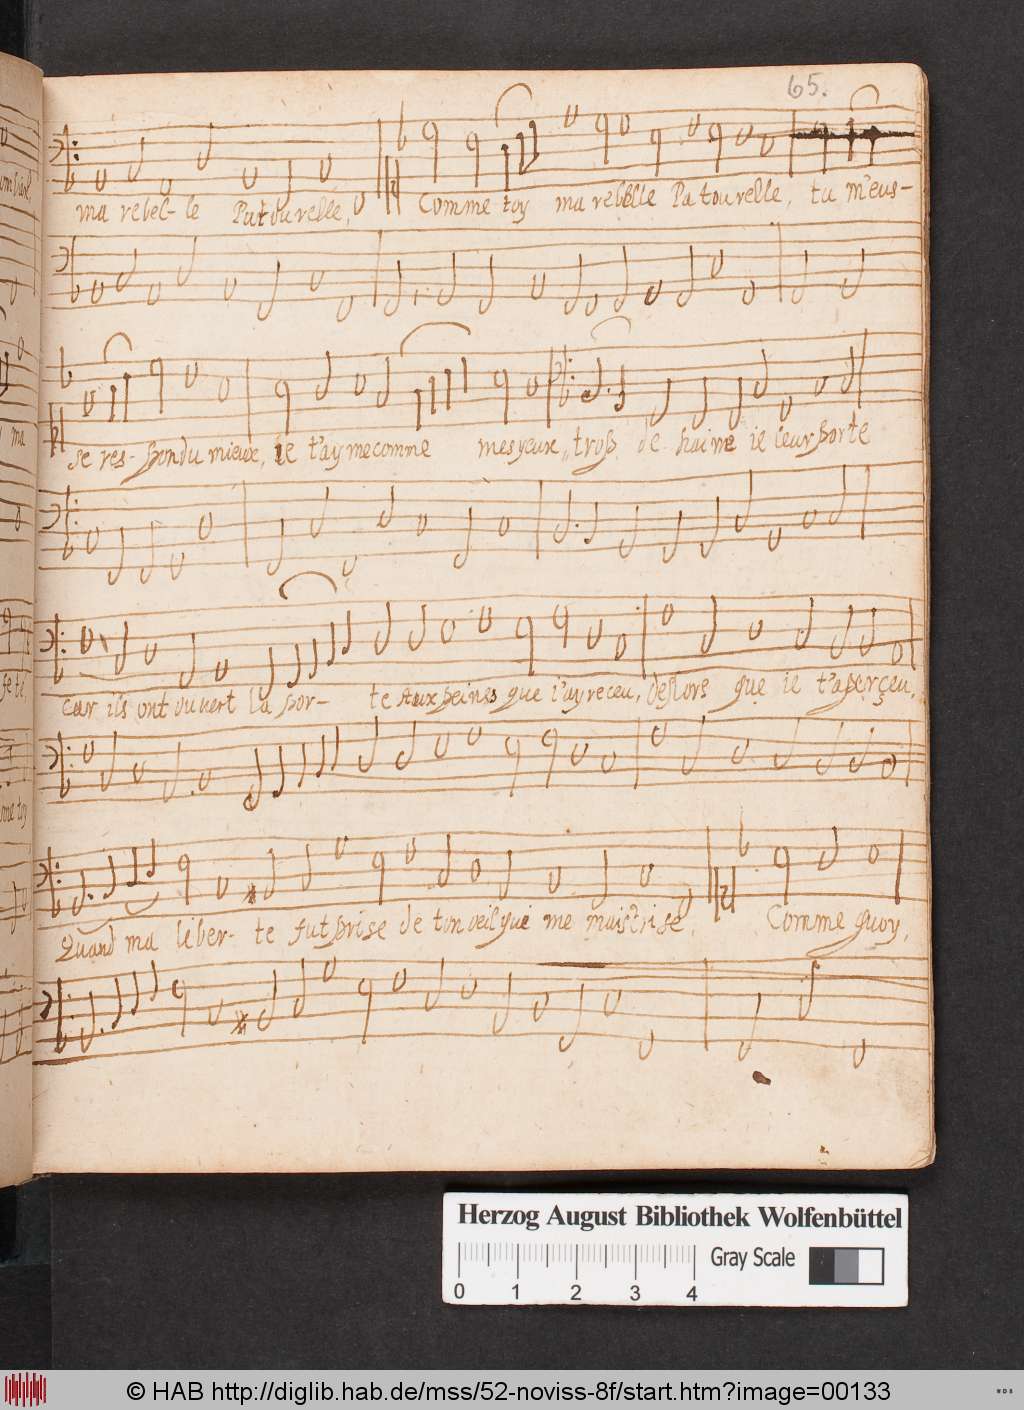 65.
ma rebel- le Patourelle, Comme toy ma rebelle Patourelle, tu m'eus-
se res- pondu mieux, Ie t'ayme comme mes yeux, trop de haine ie leur porte
car ils ont ouvert la por- te Aux peines que i'ay receu, deslors que ie t'aperçeu,
Quand ma liber- te fut prise de ton oeil qui me maistrise. Comme quoy,
Herzog August Bibliothek Wolfenbüttel
Gray Scale
0 1 2 3 4
© HAB http://diglib.hab.de/mss/52-noviss-8f/start.htm?image=00133